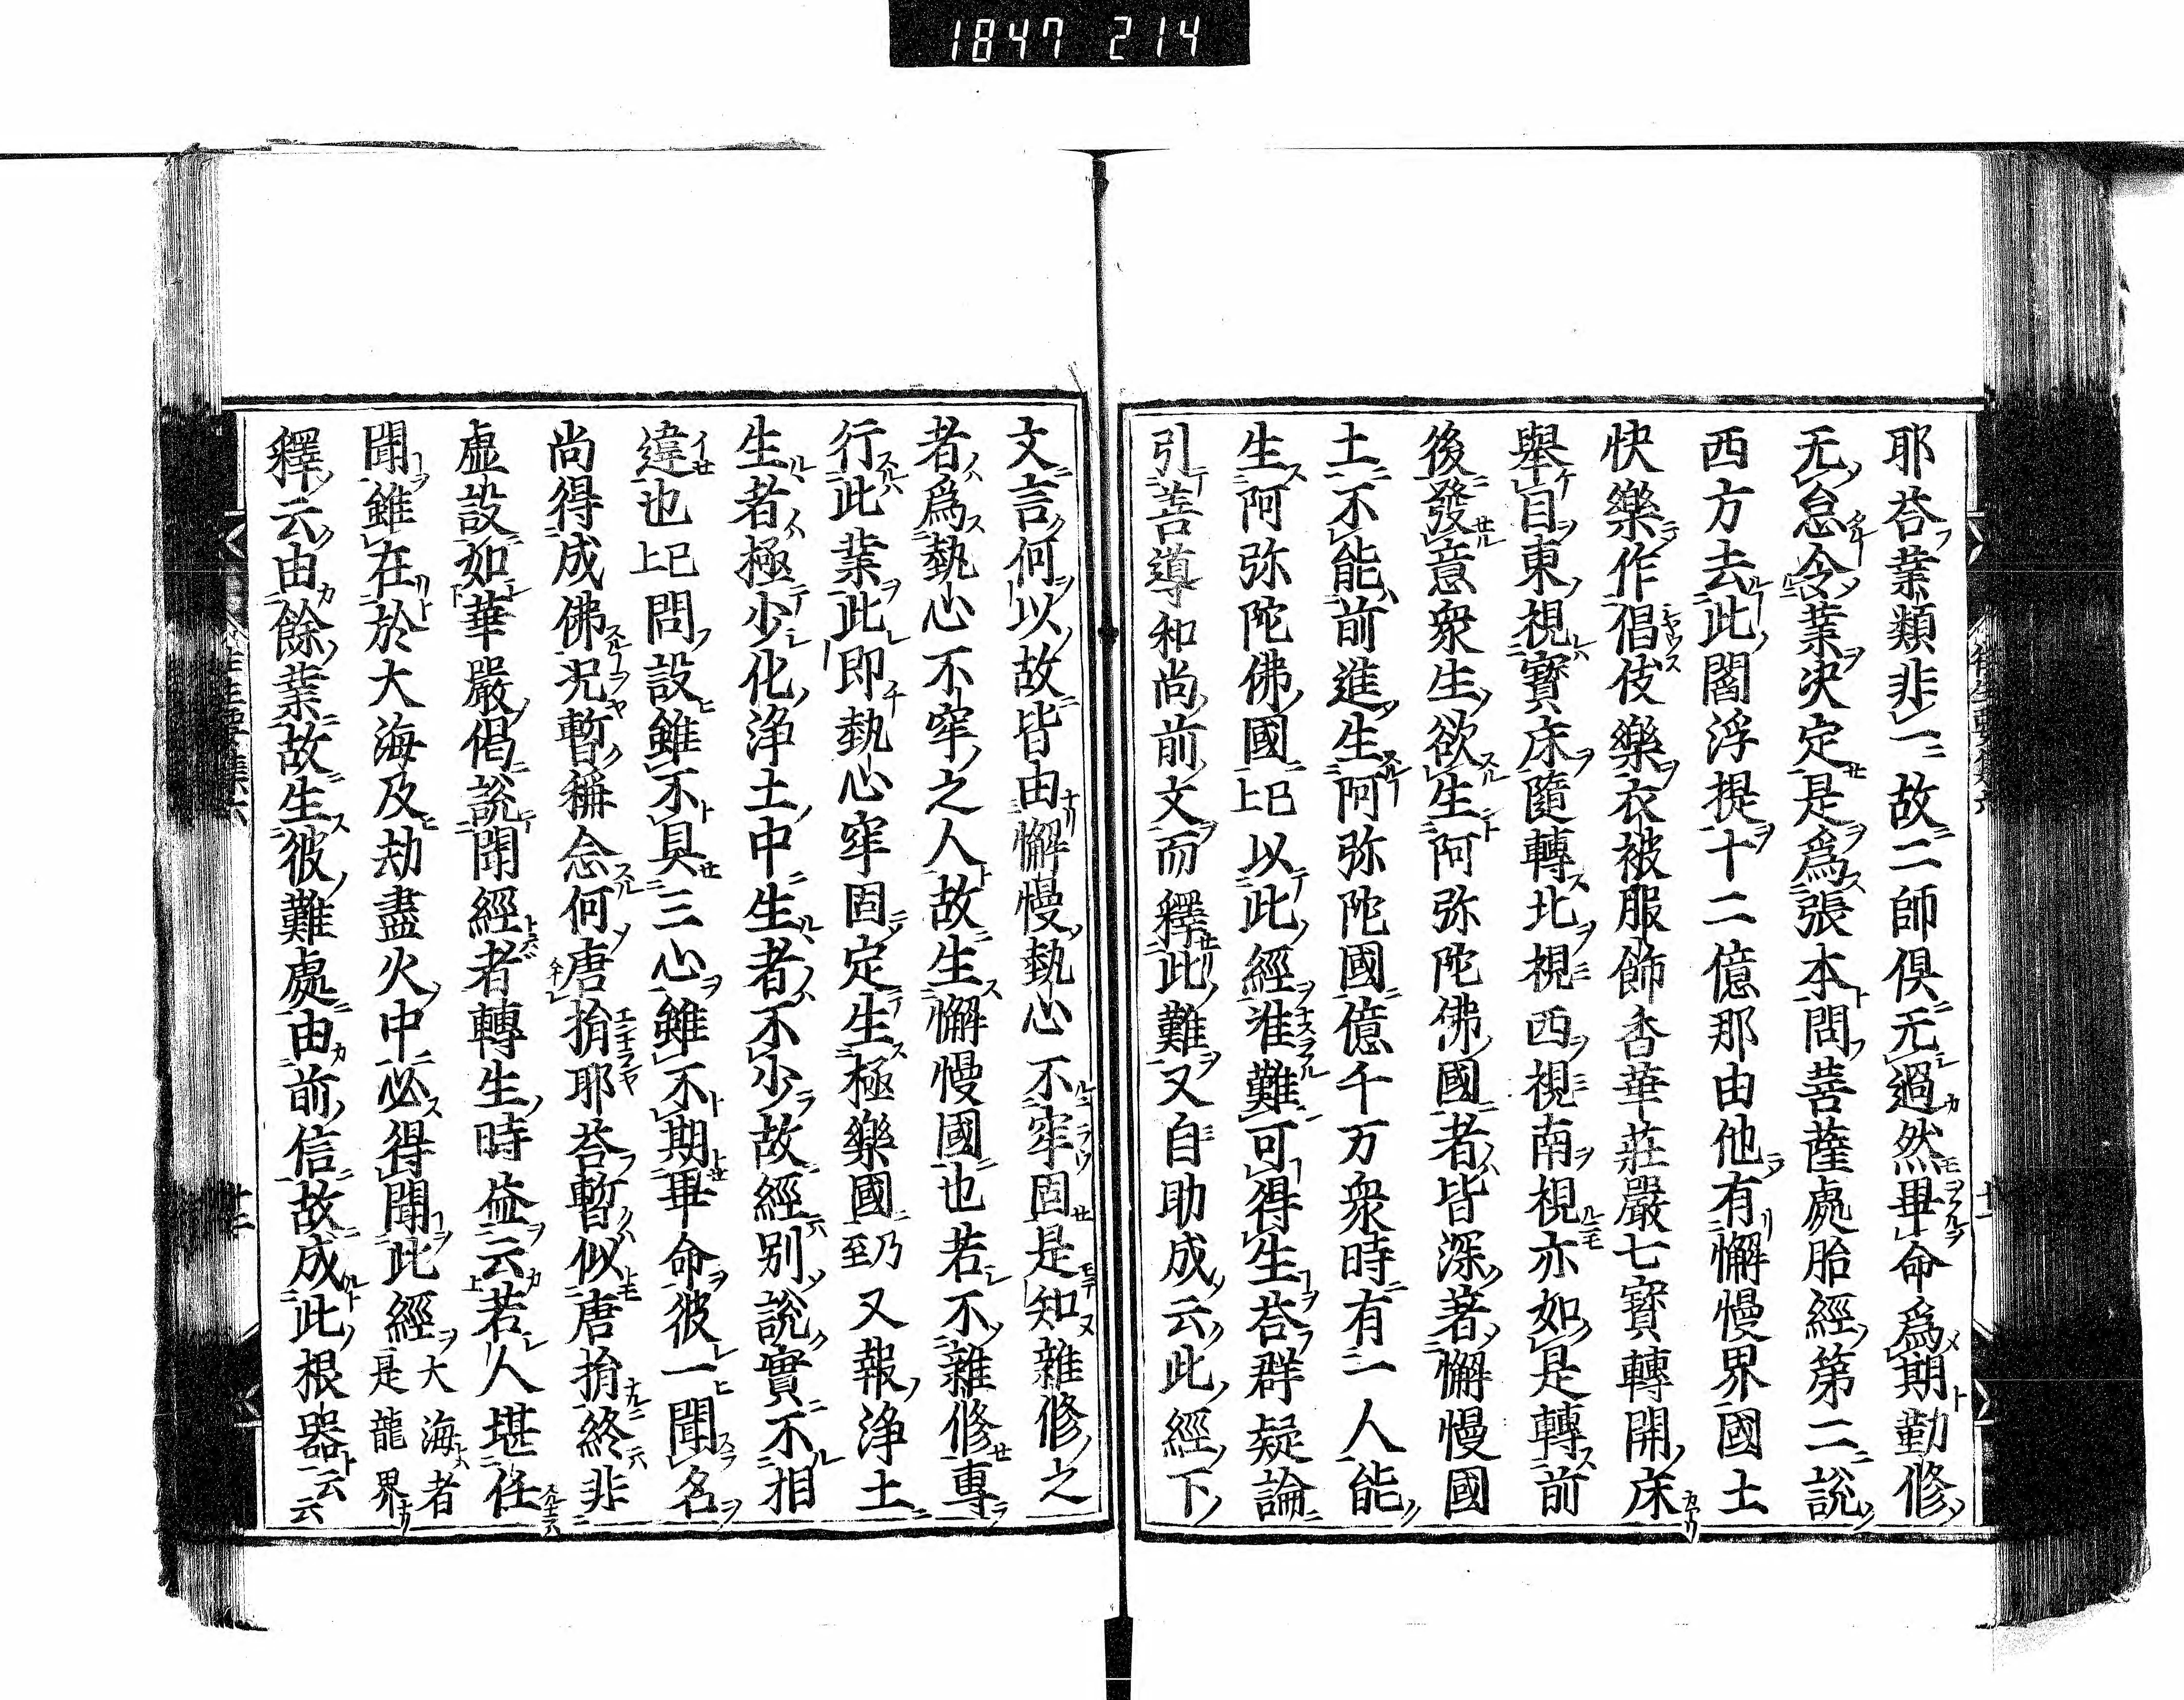 1847 214
耶荅業類非一故二師倶无過然畢命爲期勤修
无怠令業决定是爲張本問菩薩處胎經第二說
西方去此閻浮提十二億那由他有懈慢界國土
快樂作倡伎樂衣被服飾香華莊嚴七寳轉開床
舉目東視寳床隨轉北視西視南視亦如是轉前
後發意衆生欲生阿弥陀佛國者皆深著懈慢國
土不能前進生阿弥陀國億千万衆時有一人能
生阿弥陀佛國已上以此經准難可得生荅群疑論
引善導和尚前文而釋此難又自助成云此經下
文言何以故皆由懈慢執心不牢固是知雜修之
者爲執心不牢之人故生懈慢國也若不雜修專
行此業此即執心牢固定生極樂國乃至又報浄土
生者極少化浄土中生者不少故經别說實不相
違也已上問設雖不具三心雖不期畢命彼一聞名
尚得成佛况暫稱念何唐捐耶荅暫似唐捐終非
虚設如華嚴偈說聞經者轉生時益云若人堪任
聞雖在於大海及劫盡火中必得聞此經大海者是龍界
釋云由餘業故生彼難處由前信故成此根器云云